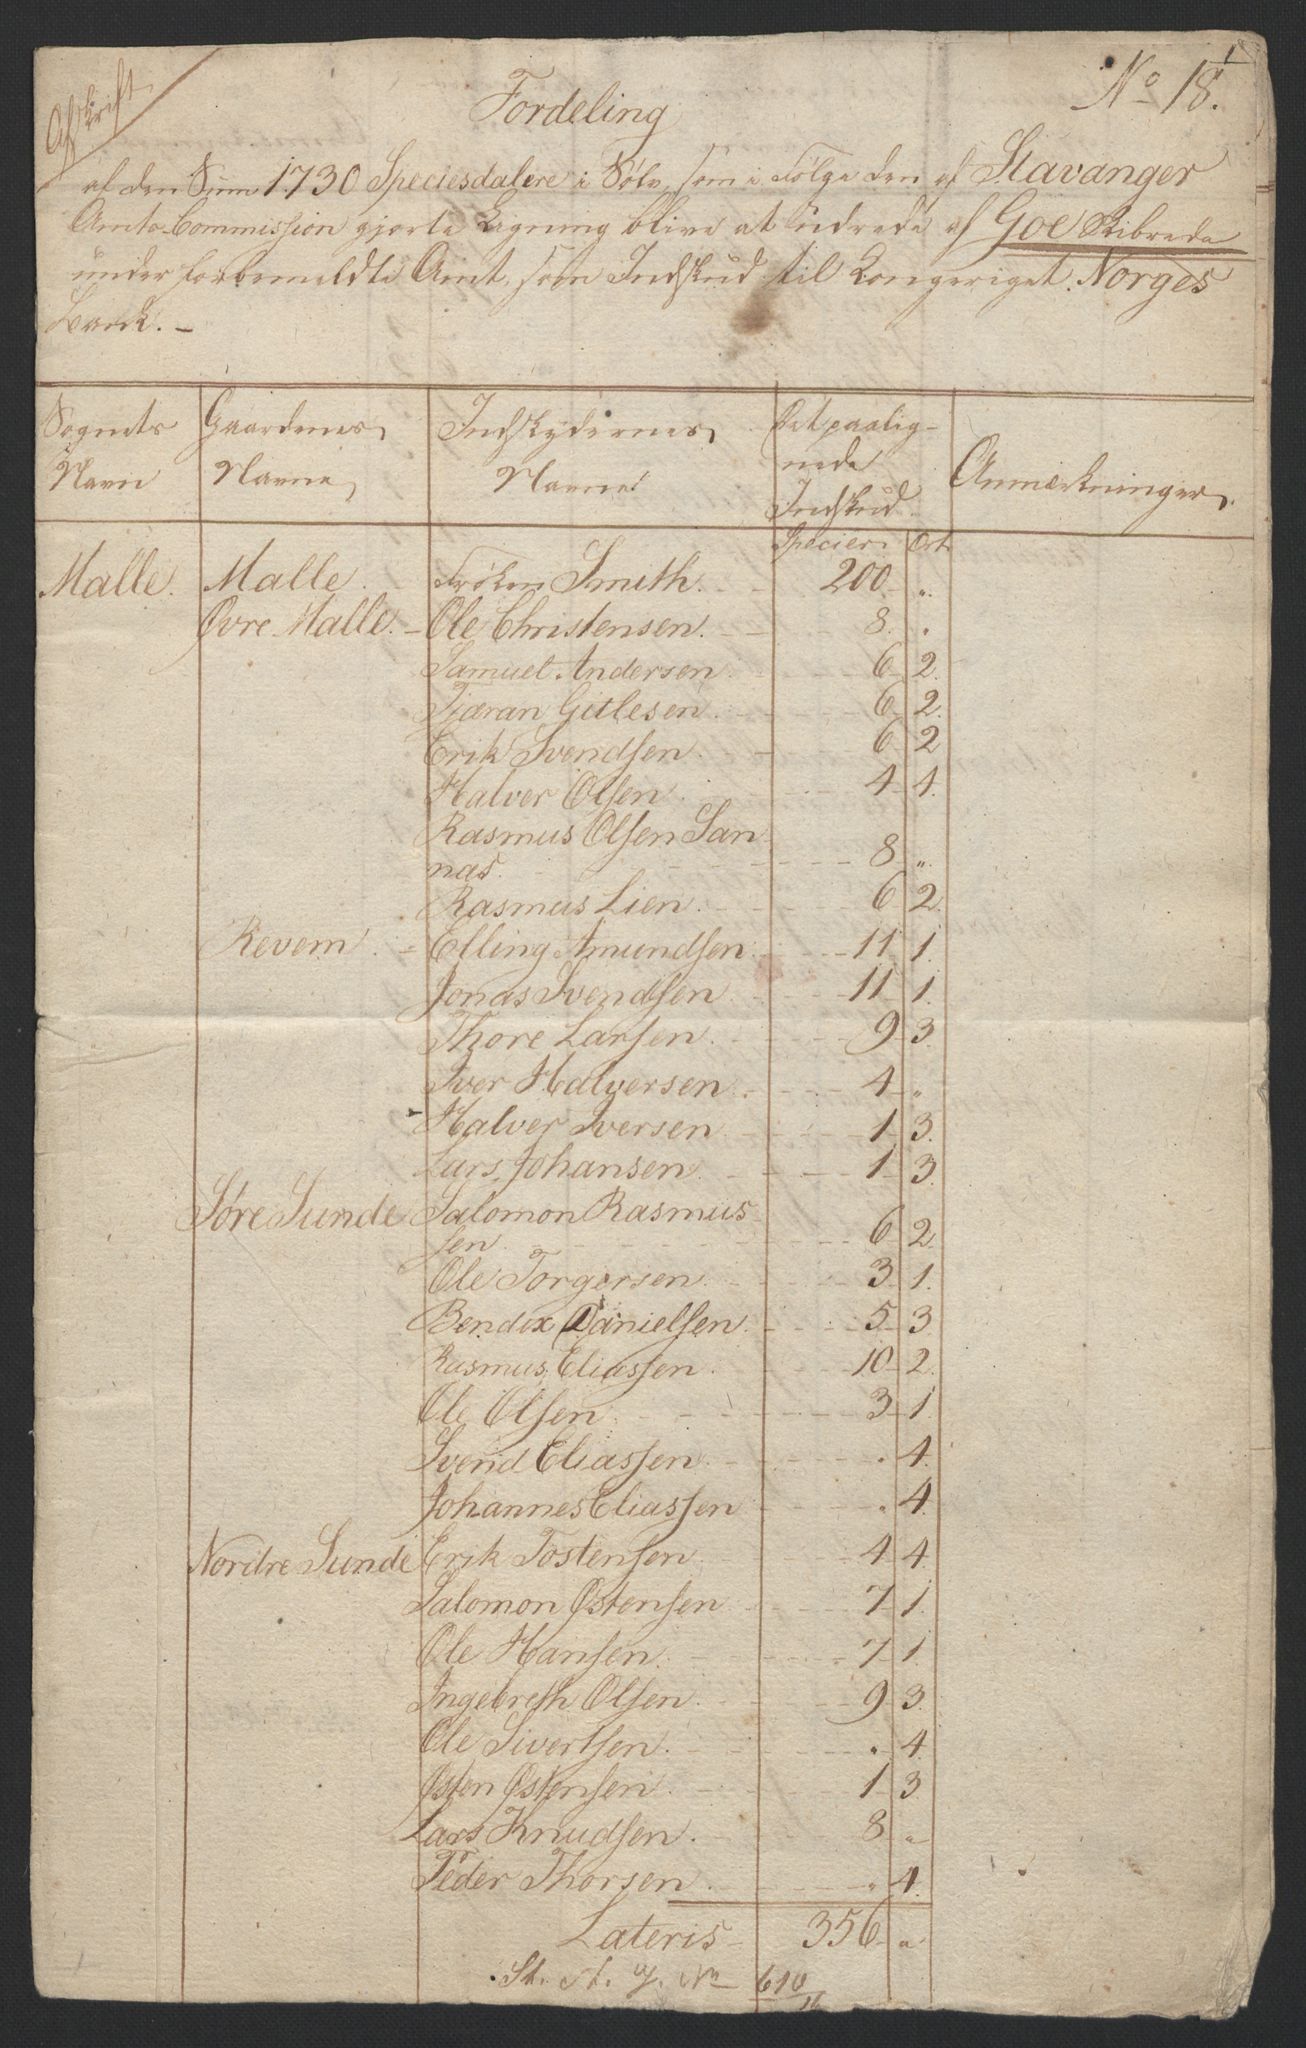 Afskrift
No 18.
1
Fordeling
af den Sum 1730 Speciesdalere i Sølv, som i Følge den af Stavanger
Amts-Commission gjorte Ligning blive at udrede af Goe Skibrede
under forbemeldte Amt, som Indskud til Kongeriget Norges
Bank. –
Sognets Navn | Gaardenes Navne | Indskydernes Navne | Det paalignede Indskud. | Anmærkninger.
Specier. Ort
Malle. Malle. Frøken Smith. 200 „
Øvre Malle. Ole Christensen. 8. „
Samuel Andersen. 6 2.
Tjæran Gitlesen. 6 2.
Erik Svendsen. 6 2
Halver Olsen. 4 4.
Rasmus Olsen San
nas. 8 „
Rasmus Lien. 6 2.
Revem. Elling Amundsen 11 1.
Jonas Svendsen 11 1.
Thore Larsen. 9 3.
Iver Halversen. 4 „
Halver Iversen. 1 3.
Lars Johansen. 1 3.
Søre Sunde Salomon Rasmus
sen. 6 2
Ole Torgersen. 3 1.
Bendix Danielsen. 5 3
Rasmus Eliassen. 10 2.
Ole Olsen. 3 1.
Svend Eliassen. „ 4.
Johannes Eliassen „ 4.
Nordre Sunde Erik Tostensen. 4 4
Salomon Østensen 7 1.
Ole Hansen. 7 1.
Ingebreth Olsen. 9 3.
Ole Sivertsen. „ 4
Østen Østensen. 1 3
Lars Knudsen. 8 „
Peder Thorsen. „ 4.
Lateris 356 „
St. A. J. No 610
16